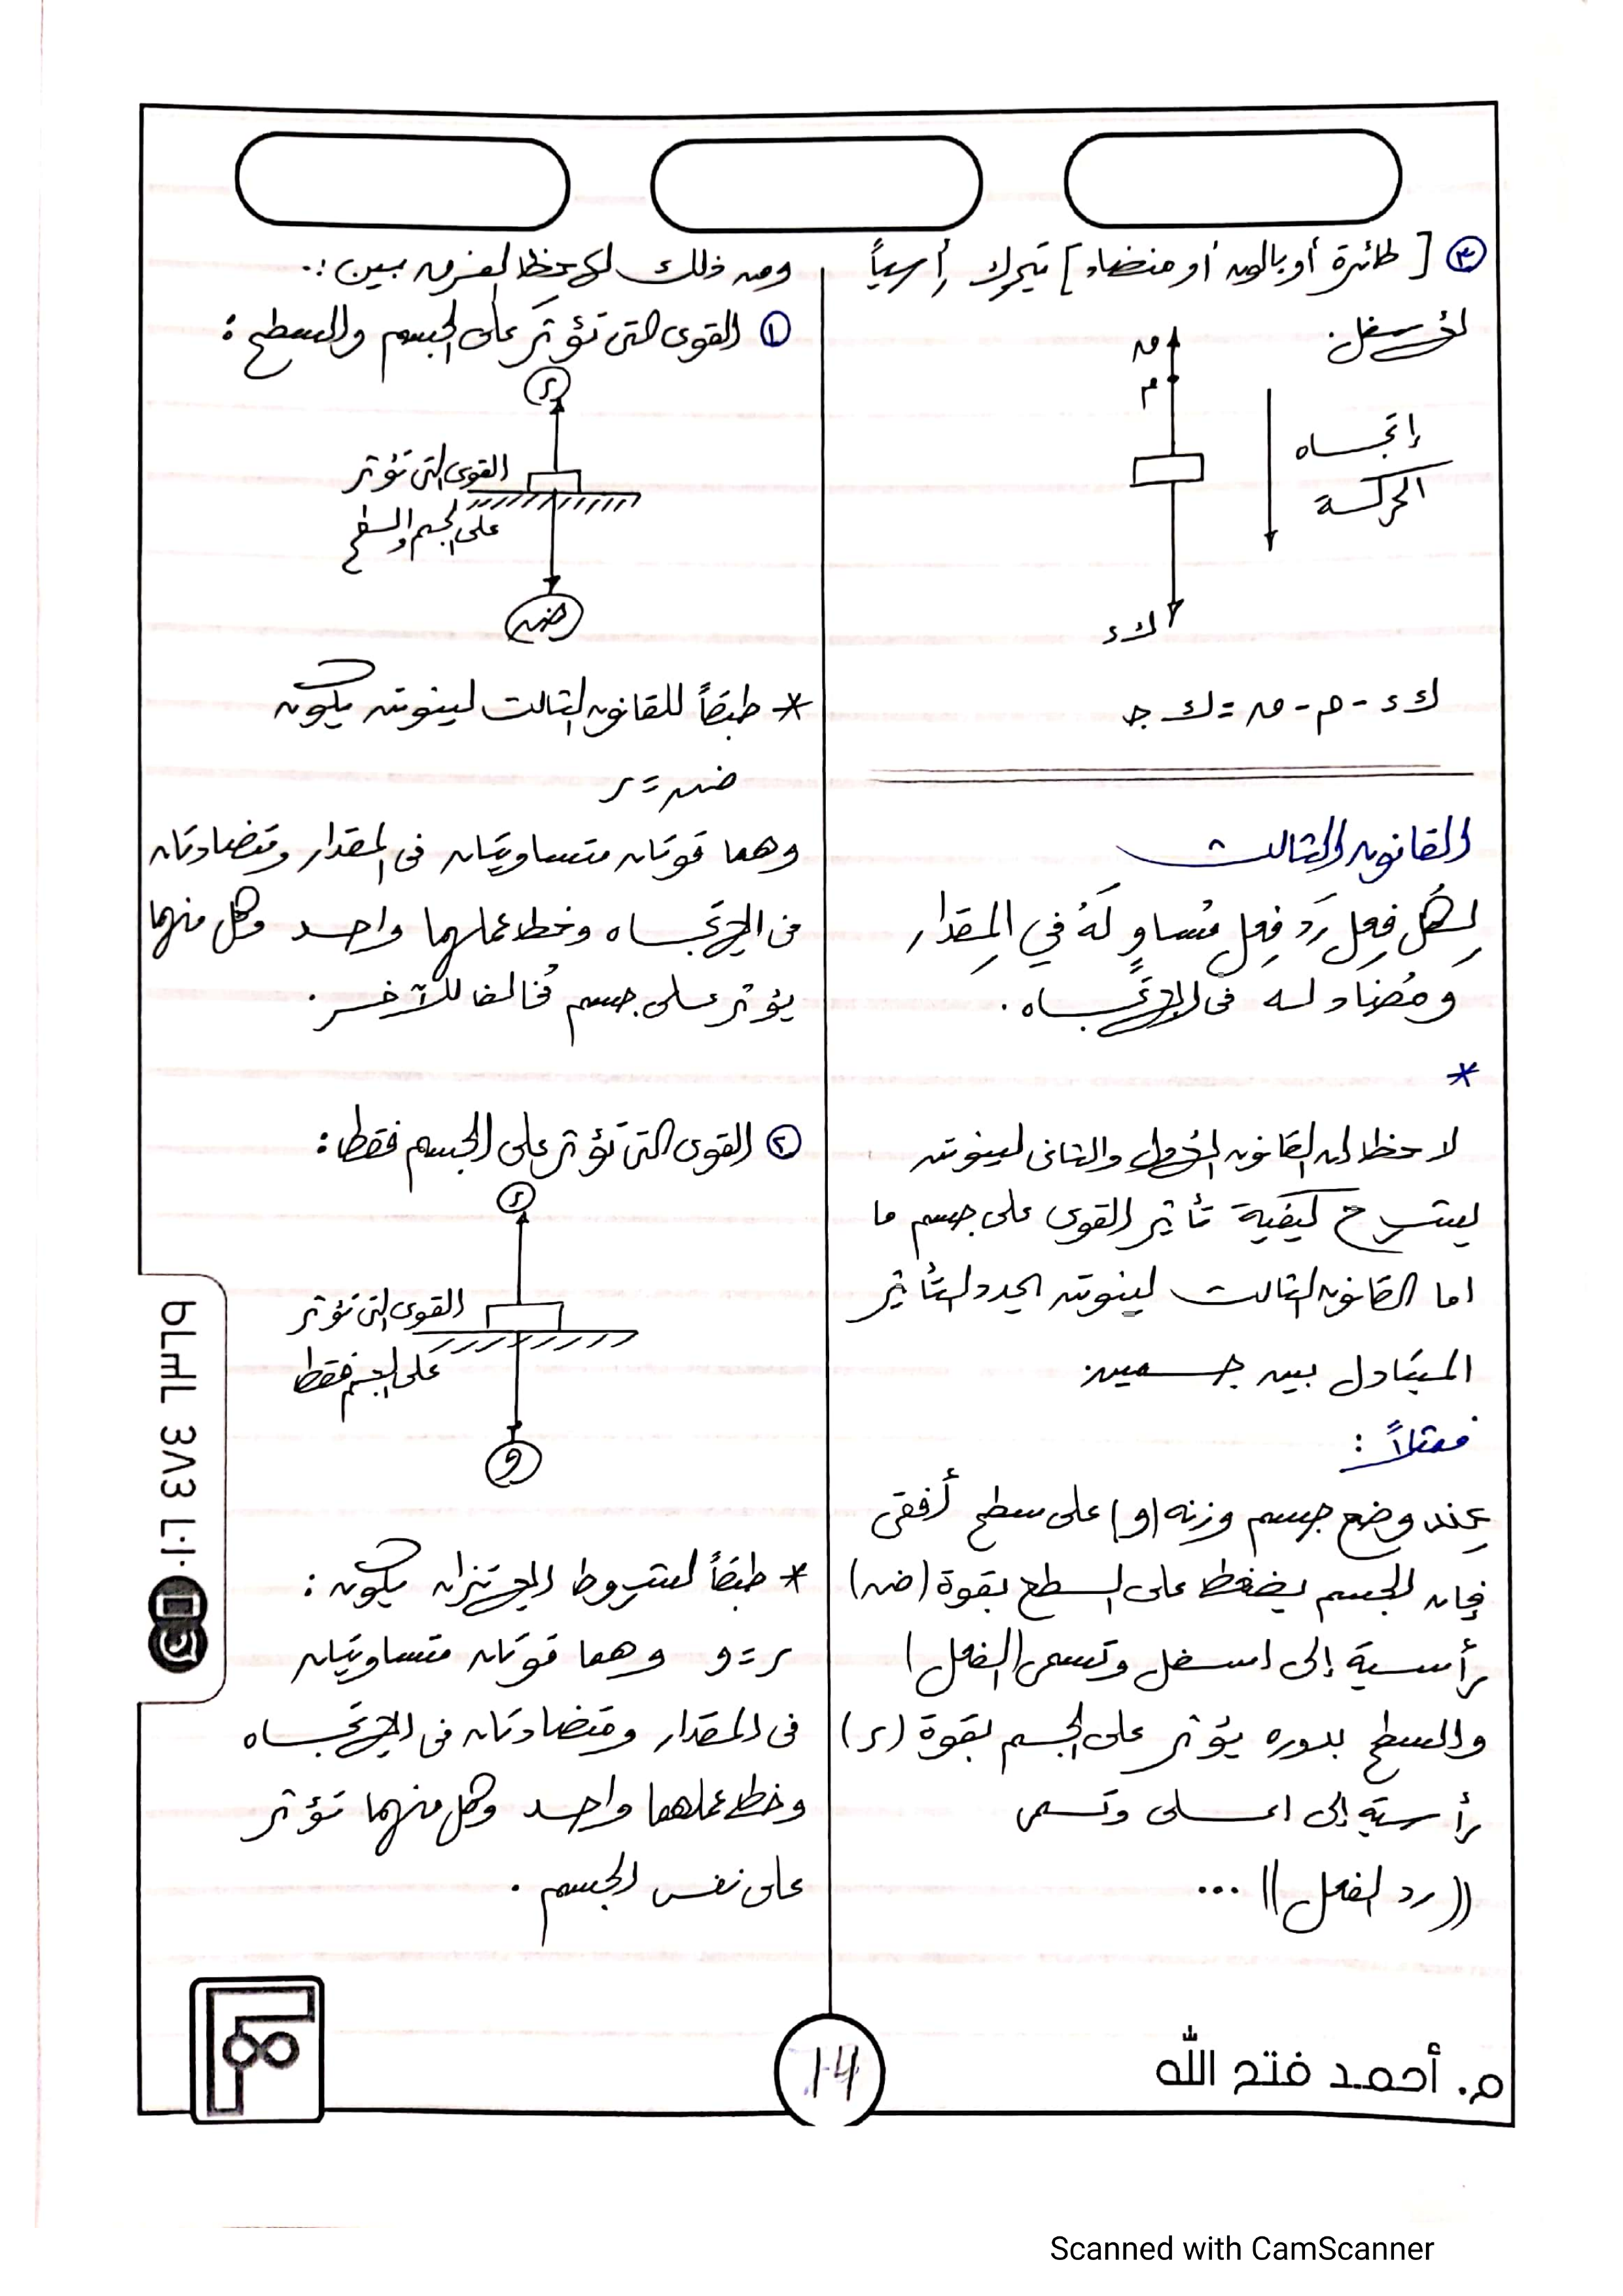 ③ [طائرة أو بالون أو منضاد] يتحرك رأسياً
لأسفل.
ق
م
إتجاه
الحركة
ك ء
ك ء - م - ق = ك ج
القانون الثالث
لِكُل فِعل رَد فِعل مُساوٍ لَهُ في المِقدار
ومُضاد له فى الإتجاه.
*
لاحظ ان القانون الأول والثانى لينوتن
يشرح كيفية تأثير القوى على جسم ما
اما القانون الثالث لينوتن يحدد التأثير
المتبادل بين جسمين
فمثلاً :
عِند وضع جسم وزنه (و) على سطح أفقى
فإن الجسم يضغط على السطح بقوة (ضـ)
رأسية إلى اسفل وتسمى (الفعل)
والسطح بدوره يؤثر على الجسم بقوة (ر)
رأسية إلى اعلى وتسمى
((رد الفعل)) ...
ومن ذلك لاحظ الفرق بين :.
① القوى التى تؤثر على الجسم والسطح :
ر
القوى التى تؤثر
على الجسم والسطح
ضـ
* طبقاً للقانون الثالث لينوتن يكون
ضـ = ر
وهما قوتان متساويتان فى المقدار ومتضادتان
فى الإتجاه وخط عملهما واحد وكل منهما
يؤثر على جسم مُخالف للآخر.
② القوى التى تؤثر على الجسم فقط :
ر
القوى التى تؤثر
على الجسم فقط
و
* طبقاً لشروط الإتزان يكون :
ر = و وهما قوتان متساويتان
فى المقدار ومتضادتان فى الإتجاه
وخط عملهما واحد وكل منهما تؤثر
على نفس الجسم .
م. أحمد فتح الله
14
Scanned with CamScanner